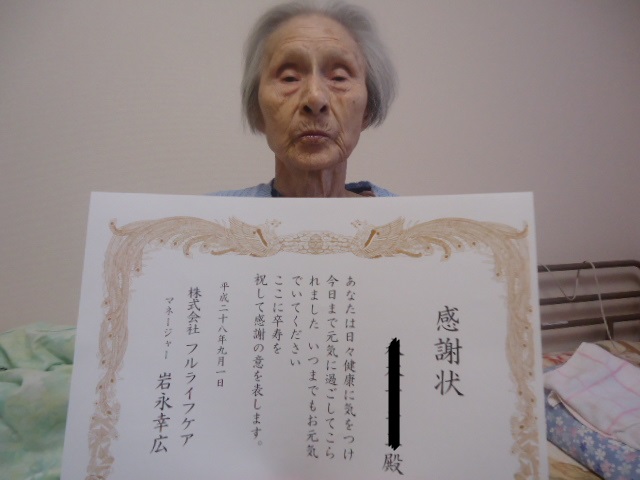 感謝状
殿
あなたは日々健康に気をつけ
今日まで元気に過ごしてこら
れました いつまでもお元気
でいてください
ここに卒寿を
祝して感謝の意を表します。
平成二十八年九月一日
株式会社 フルライフケア
マネージャー 岩永幸広